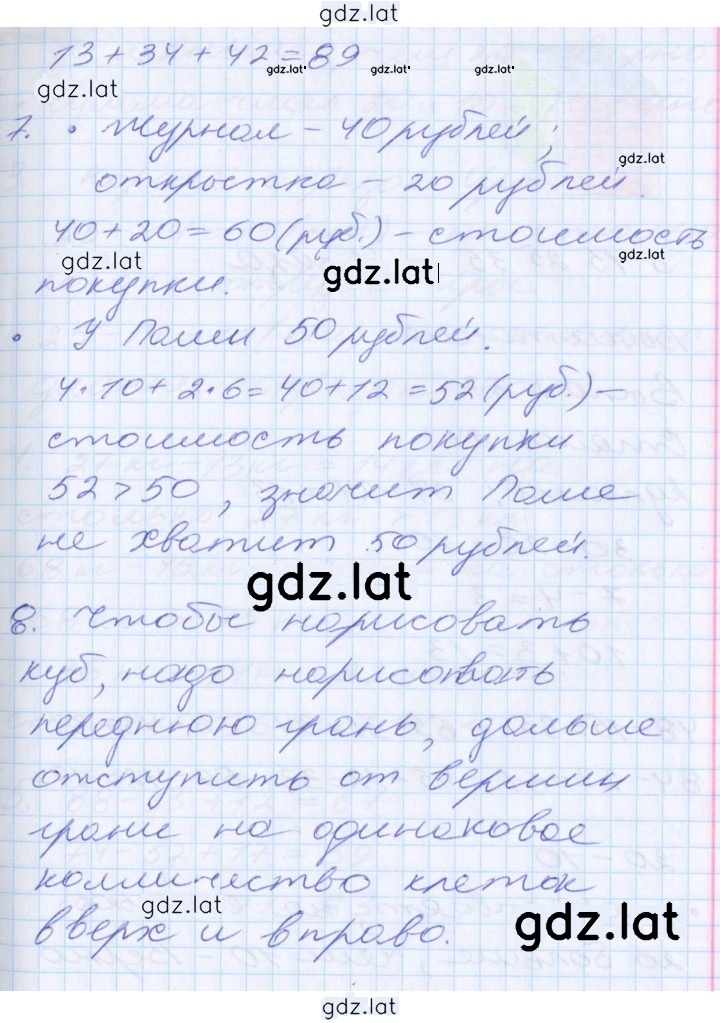 gdz.lat
13 + 34 + 42 = 89
gdz.lat gdz.lat gdz.lat
gdz.lat
7. • Журнал – 40 рублей;
gdz.lat
открытка – 20 рублей.
40 + 20 = 60 (руб.) – стоимость
gdz.lat gdz.lat gdz.lat
покупки.
• У Паши 50 рублей.
4 • 10 + 2 • 6 = 40 + 12 = 52 (руб.) –
стоимость покупки
52 > 50, значит Паше
не хватит 50 рублей.
gdz.lat
8. Чтобы нарисовать
куб, надо нарисовать
переднюю грань, дальше
отступить от вершин
грани на одинаковое
колличество клеток
gdz.lat
вверх и вправо.
gdz.lat
gdz.lat